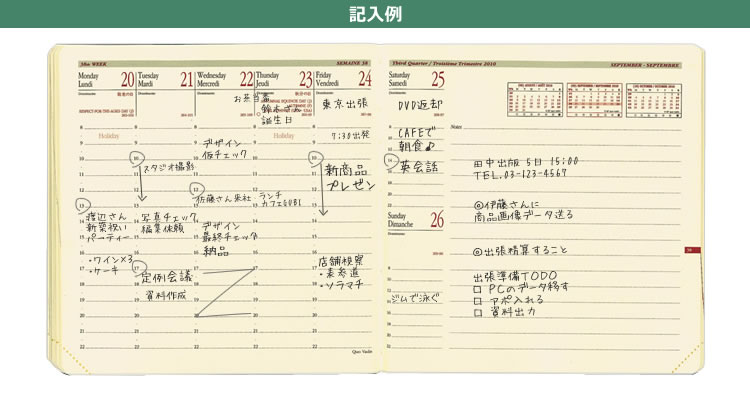 記入例
38th WEEK
SEMAINE 38
Monday 20
Lundi
Tuesday 21
Mardi
Wednesday 22
Mercredi
Thursday 23
Jeudi
Friday 24
Vendredi
RESPECT FOR THE AGED DAY (J)
Holiday
渡辺さん
新築祝い
パーティー
・ワイン×3
・ケーキ
スタジオ撮影
写真チェック
編集依頼
定例会議
資料作成
お茶当番
デザイン
仮チェック
佐藤さん来社
デザイン
最終チェック
納品
誕生日
Holiday
ランチ
カフェGUBI
東京出張
7:30出発
新商品
プレゼン
店舗視察
・表参道
・ソラマチ
Quo Vadis
Third Quarter / Troisième Trimestre 2010
SEPTEMBER - SEPTEMBRE
Saturday 25
Samedi
DVD返却
CAFEで
朝食♪
英会話
Sunday 26
Dimanche
ジムで泳ぐ
Notes
田中出版 5日 15:00
TEL.03-123-4567
◎伊藤さんに
商品画像データ送る
◎出張精算すること
出張準備TODO
□ PCのデータ移す
□ アポ入れる
□ 資料出力
39